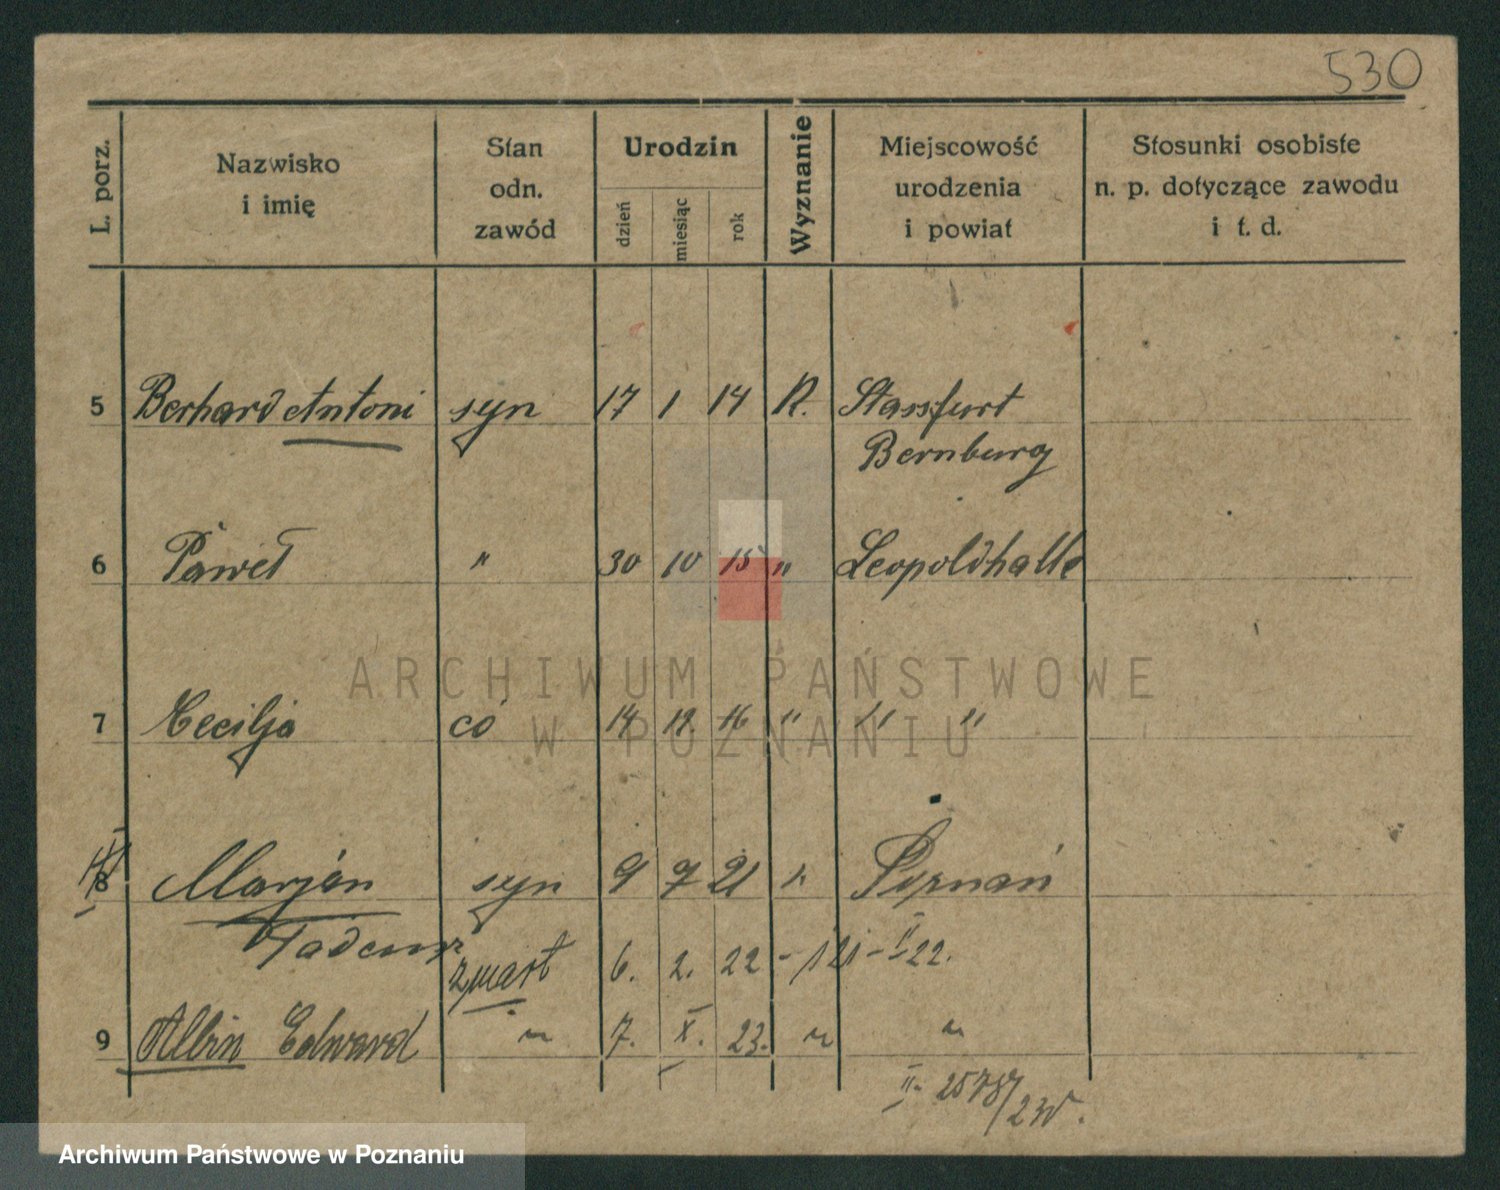 530
L. porz.
Nazwisko
i imię
Stan
odn.
zawód
Urodzin
dzień
miesiąc
rok
Wyznanie
Miejscowość
urodzenia
i powiat
Stosunki osobiste
n. p. dotyczące zawodu
i t. d.
5 Berhard Antoni syn 17 1 14 R. Stassfurt
Bernburg
6 Paweł " 30 10 15 " Leopoldhalle
ARCHIWUM PAŃSTWOWE
7 Cecilja có 14 12. 16 " " "
W POZNANIU
8 Marjan syn 9 7 21 " Poznań
Tadeusz
zmarł 6. 2. 22 - 121 - II 22.
9 Albin Edward " 7. X. 23. " "
II. 2578/23
Archiwum Państwowe w Poznaniu